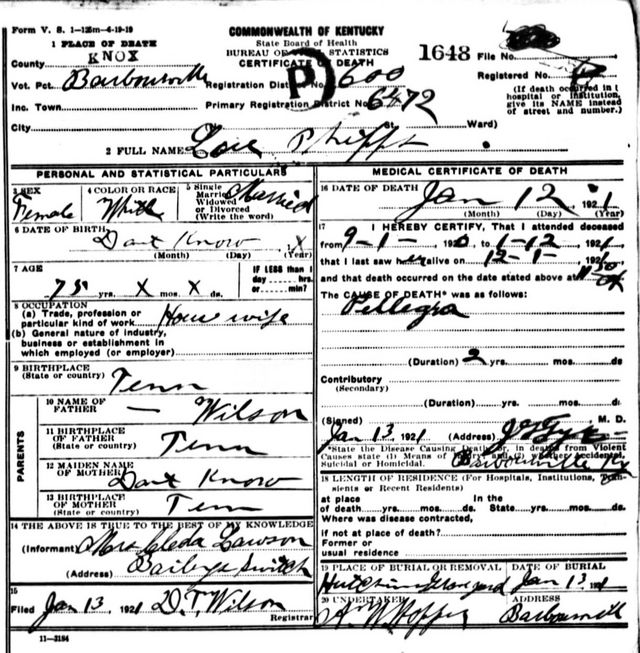 Form V. S. 1-125m-4-19-19
COMMONWEALTH OF KENTUCKY
State Board of Health
BUREAU OF VITAL STATISTICS
CERTIFICATE OF DEATH
1 PLACE OF DEATH
County KNOX
Vot. Pct. Barbourville
Inc. Town
City
Registration District No. 600
Primary Registration District No. 6472
1648 File No.
Registered No.
(If death occurred in
hospital or institution,
give its NAME instead
of street and number.)
No. St. Ward)
P
2 FULL NAME Phipps
PERSONAL AND STATISTICAL PARTICULARS
3 SEX Female
4 COLOR OR RACE White
5 Single Married Widowed or Divorced (Write the word) Married
6 DATE OF BIRTH Dont Know X
(Month) (Day) (Year)
7 AGE 75 yrs. X mos. X ds.
IF LESS than 1
day hrs.
or min.?
8 OCCUPATION
(a) Trade, profession or
particular kind of work House wife
(b) General nature of industry,
business or establishment in
which employed (or employer)
9 BIRTHPLACE
(State or country) Tenn
PARENTS
10 NAME OF
FATHER — Wilson
11 BIRTHPLACE
OF FATHER
(State or country) Tenn
12 MAIDEN NAME
OF MOTHER Dont Know
13 BIRTHPLACE
OF MOTHER
(State or country) Tenn
14 THE ABOVE IS TRUE TO THE BEST OF MY KNOWLEDGE
(Informant) Mrs Cleda Lawson
(Address) Baileys Switch
15
Filed Jan 13, 1921 D. T. Wilson
Registrar
11-3184
MEDICAL CERTIFICATE OF DEATH
16 DATE OF DEATH Jan 12, 1921
(Month) (Day) (Year)
17 I HEREBY CERTIFY, That I attended deceased
from 9-1- 1920, to 1-12, 1921,
that I last saw her alive on 12-1-, 192
and that death occurred on the date stated above at
The CAUSE OF DEATH* was as follows:
Pellegra
(Duration) 2 yrs. mos. ds.
Contributory
(Secondary)
(Duration) yrs. mos. ds.
(Signed) M. D.
Jan 13, 1921 (Address) Barbourville Ky
*State the Disease Causing Death, or, in deaths from Violent
Causes state (1) Means of Injury; and (2) whether Accidental,
Suicidal or Homicidal.
18 LENGTH OF RESIDENCE (For Hospitals, Institutions, Transients or Recent Residents)
at place
of death yrs. mos. ds.
In the
State yrs. mos. ds.
Where was disease contracted,
if not at place of death?
Former or
usual residence
19 PLACE OF BURIAL OR REMOVAL
DATE OF BURIAL
Jan 13, 1921
20 UNDERTAKER
ADDRESS
Hopper Barbourville